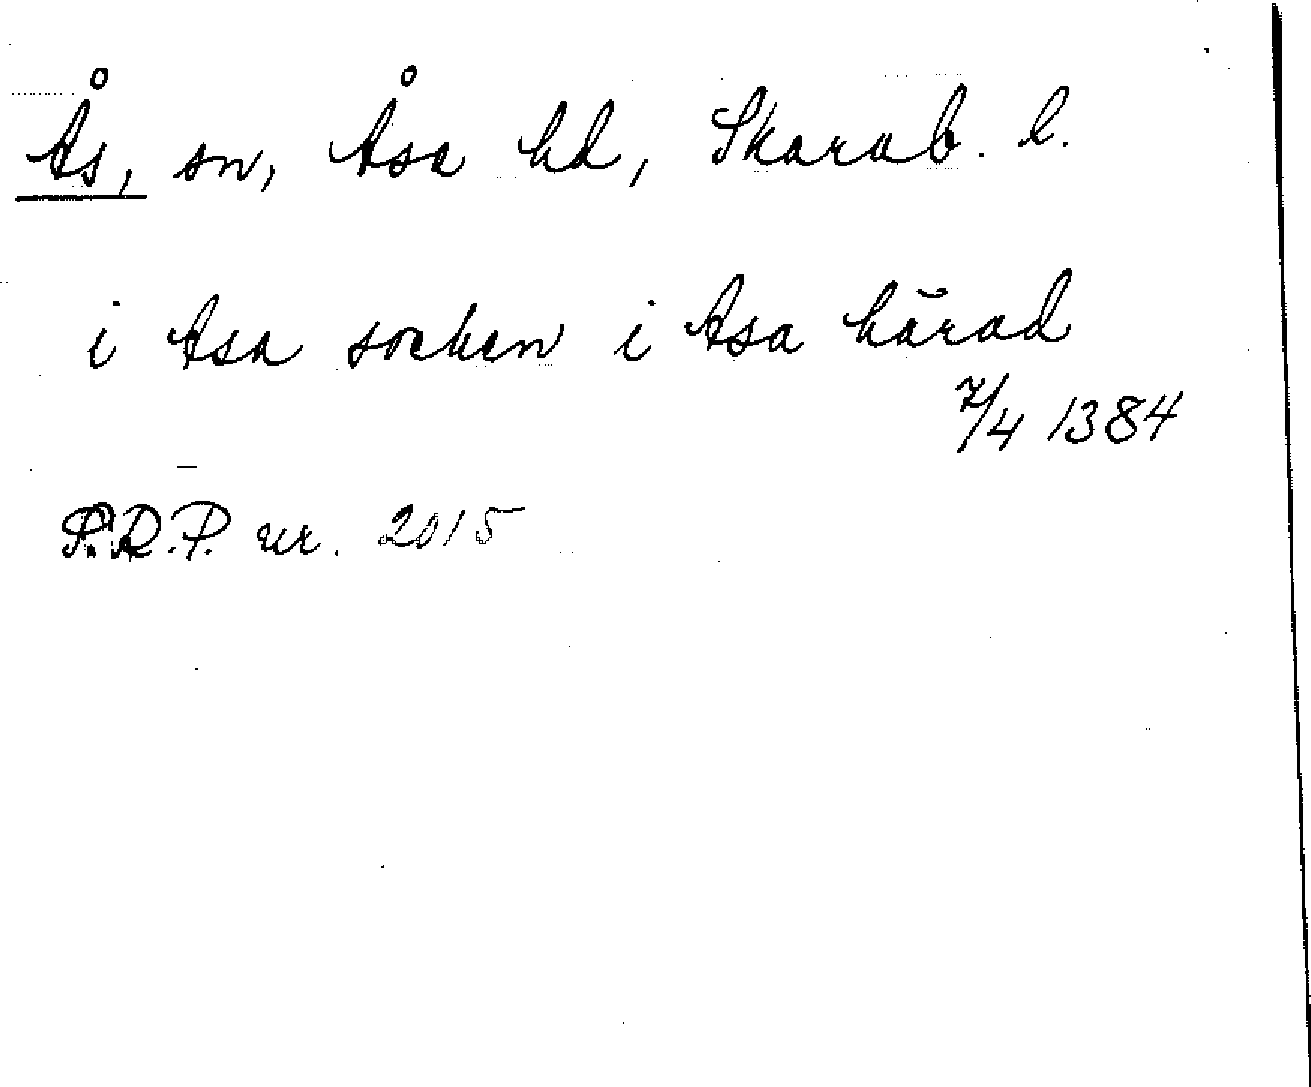 Ås, sn, Åsa hd, Skarab. l.
i Asa socken i Asa härad
7/4 1384
R.P. nr. 2015